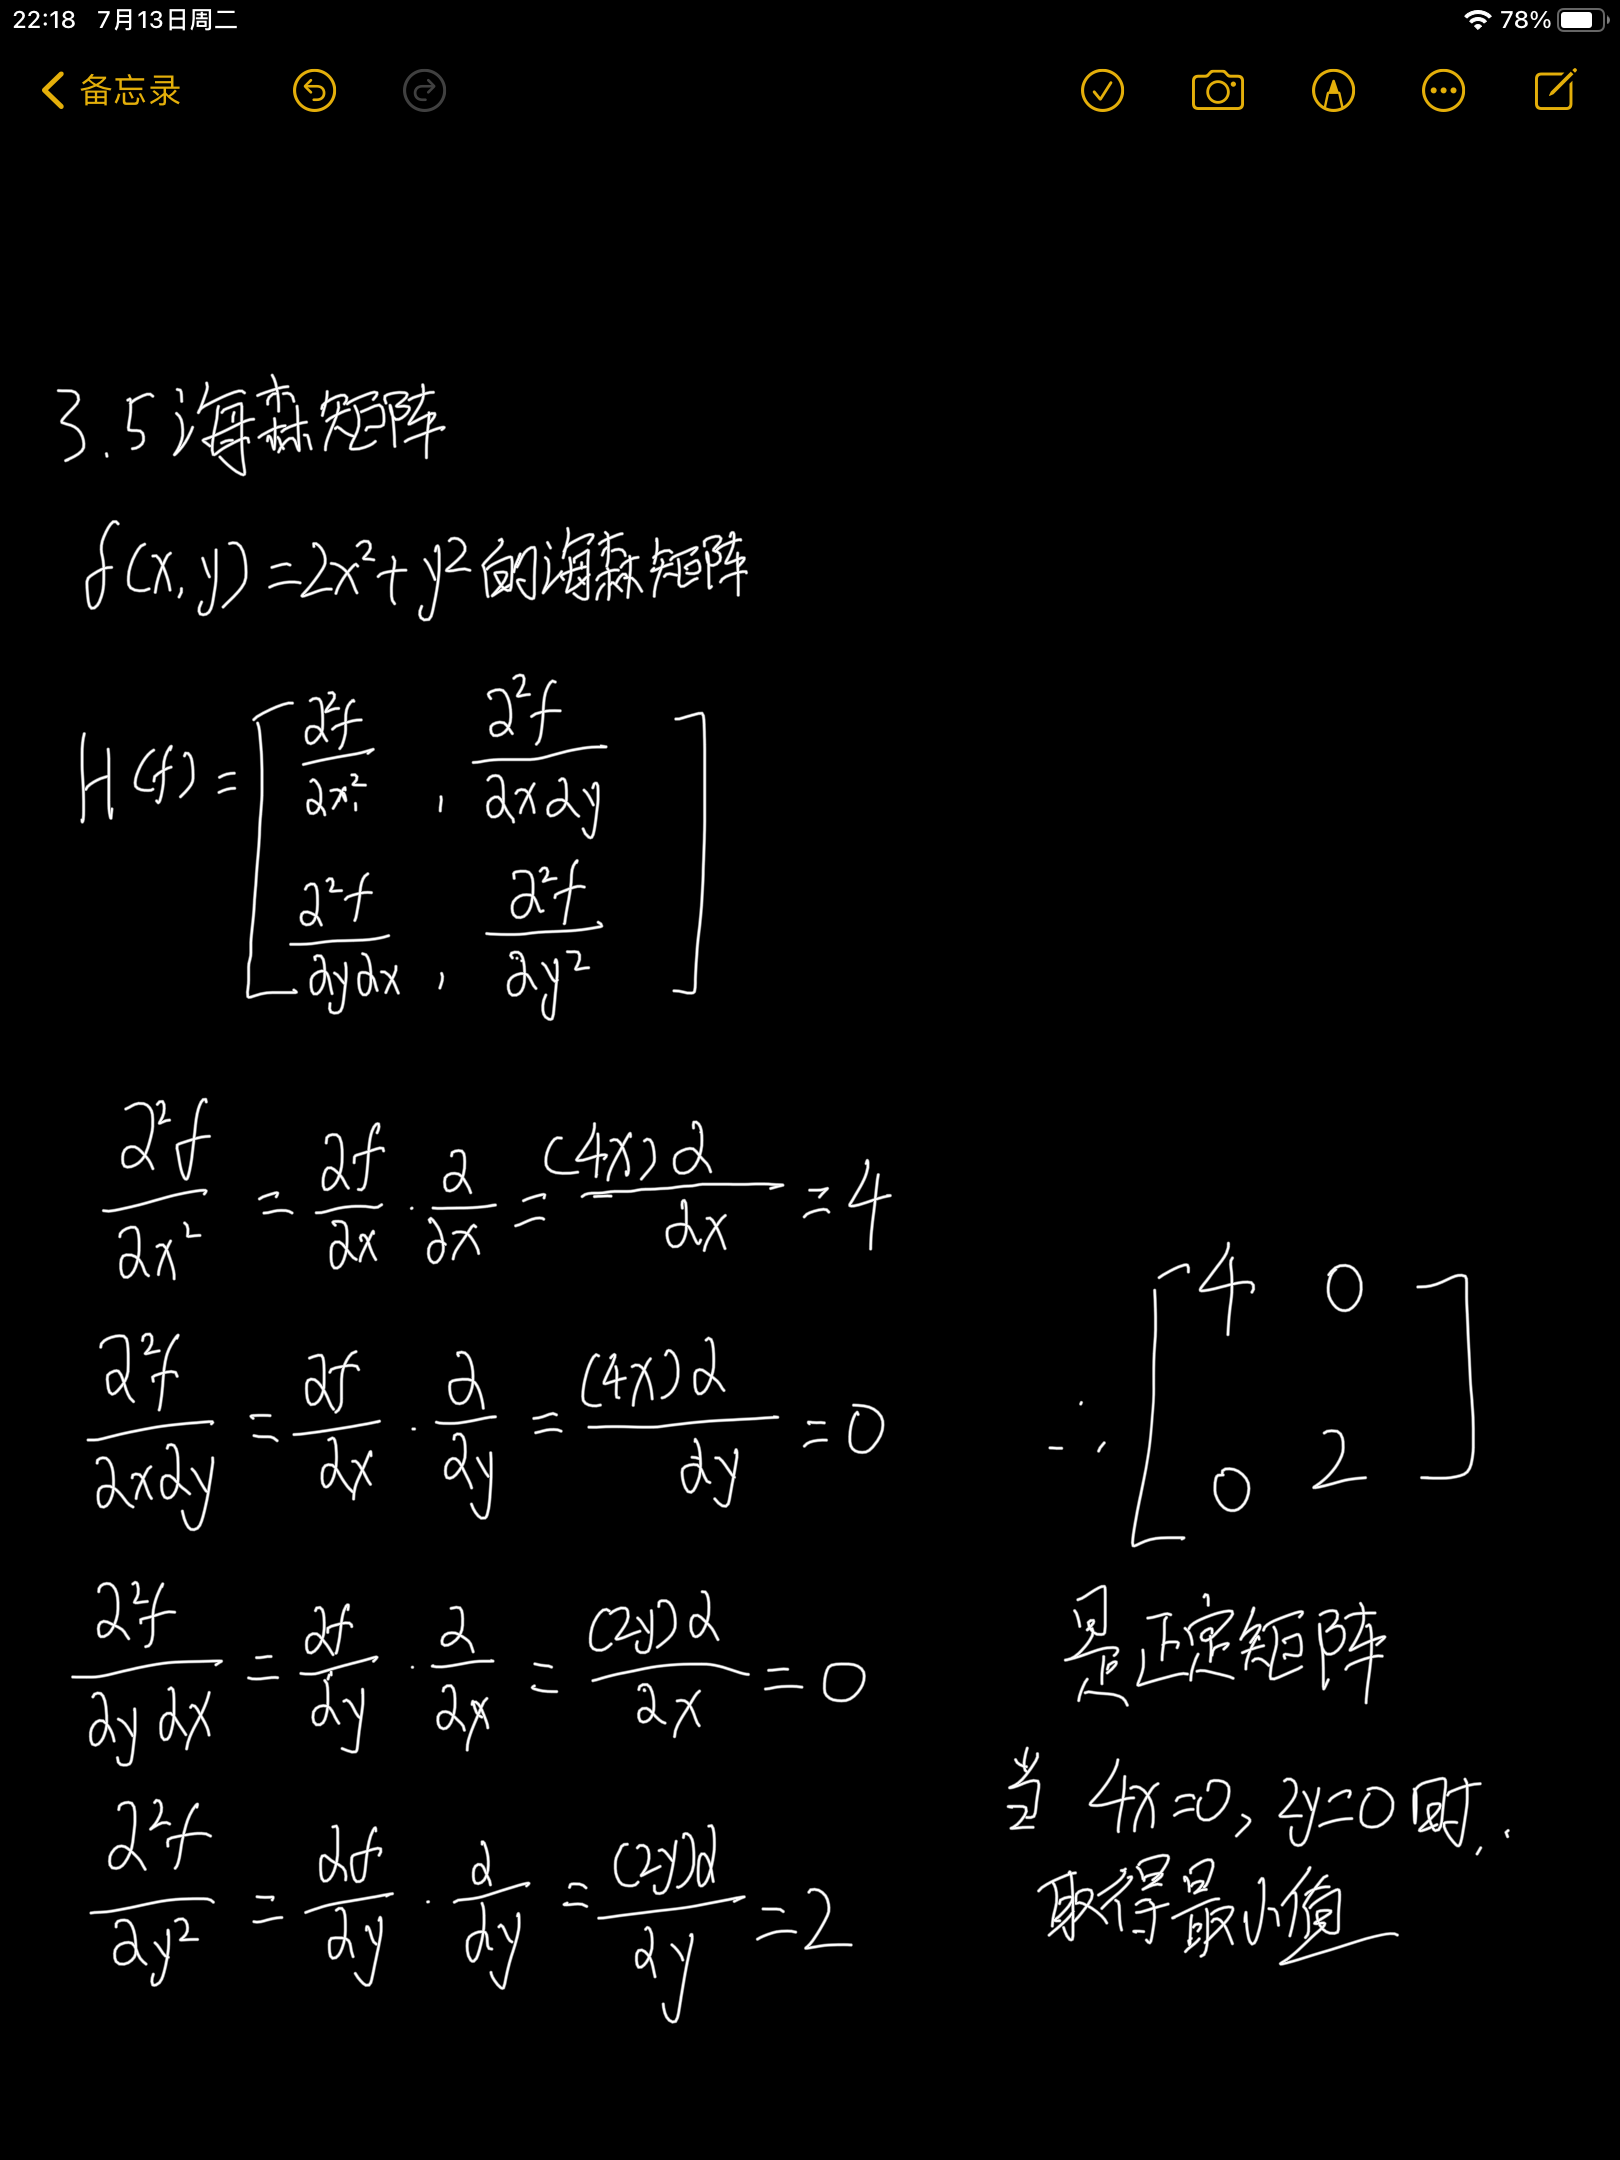 22:18 7月13日周二 78%
备忘录
3.5海森矩阵
f(x,y)=2x²+y²的海森矩阵
H(f)=[∂²f/∂x², ∂²f/∂x∂y
∂²f/∂y∂x, ∂²f/∂y²]
∂²f/∂x² = ∂f/∂x · ∂/∂x = (4x)∂/∂x = 4
∂²f/∂x∂y = ∂f/∂x · ∂/∂y = (4x)∂/∂y = 0
∂²f/∂y∂x = ∂f/∂y · ∂/∂x = (2y)∂/∂x = 0
∂²f/∂y² = ∂f/∂y · ∂/∂y = (2y)∂/∂y = 2
∴ [4 0
0 2]
是正定矩阵
当 4x=0, 2y=0时,
取得最小值